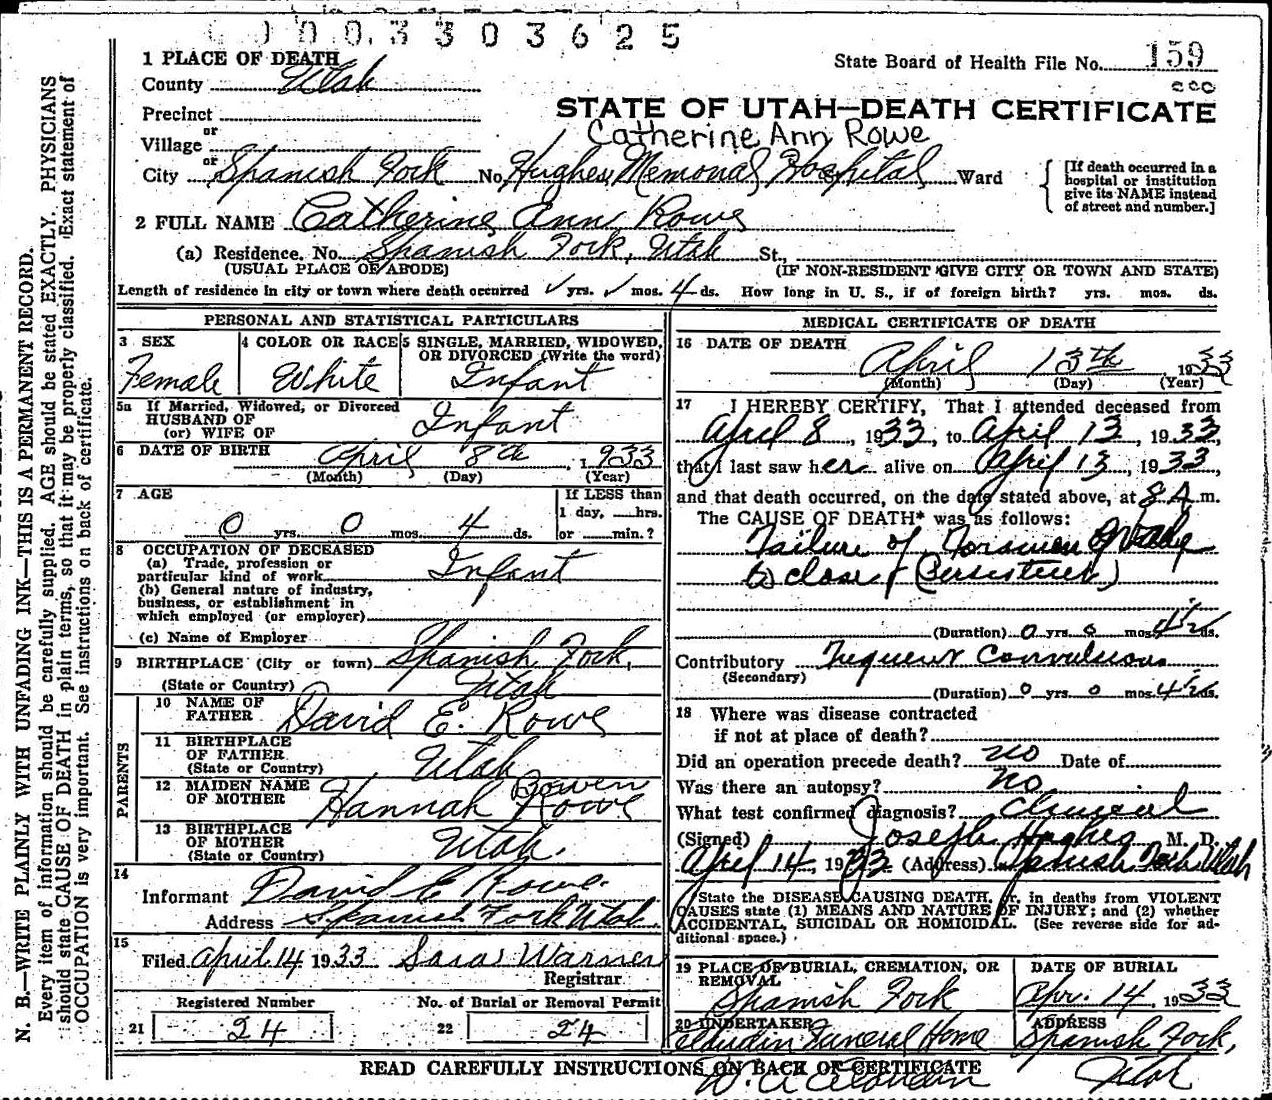 0003303625
1 PLACE OF DEATH
County Utah
State Board of Health File No. 159
Precinct
STATE OF UTAH—DEATH CERTIFICATE
or
Village
Catherine Ann Rowe
or
City Spanish Fork No. Hughes Memorial Hospital Ward
[If death occurred in a hospital or institution give its NAME instead of street and number.]
2 FULL NAME Catherine Ann Rowe
(a) Residence. No. Spanish Fork, Utah St.,
(USUAL PLACE OF ABODE) (IF NON-RESIDENT GIVE CITY OR TOWN AND STATE)
Length of residence in city or town where death occurred yrs. mos. 4 ds. How long in U. S., if of foreign birth? yrs. mos. ds.
PERSONAL AND STATISTICAL PARTICULARS
3 SEX
Female
4 COLOR OR RACE
White
5 SINGLE, MARRIED, WIDOWED, OR DIVORCED (Write the word)
Infant
5a If Married, Widowed, or Divorced
HUSBAND OF
(or) WIFE OF
Infant
6 DATE OF BIRTH April 8th, 1933
(Month) (Day) (Year)
7 AGE
0 yrs. 0 mos. 4 ds.
If LESS than
1 day, hrs.
or min.?
8 OCCUPATION OF DECEASED
(a) Trade, profession or
particular kind of work Infant
(b) General nature of industry,
business, or establishment in
which employed (or employer)
(c) Name of Employer
9 BIRTHPLACE (City or town) Spanish Fork,
(State or Country) Utah
PARENTS
10 NAME OF FATHER David E. Rowe
11 BIRTHPLACE OF FATHER (State or Country) Utah
12 MAIDEN NAME OF MOTHER Hannah Rowe Bowen
13 BIRTHPLACE OF MOTHER (State or Country) Utah.
14
Informant David E Rowe.
Address Spanish Fork Utah.
15
Filed April 14 1933 Sara Warner
Registrar
Registered Number No. of Burial or Removal Permit
21 24 22 24
MEDICAL CERTIFICATE OF DEATH
16 DATE OF DEATH
April 13th 1933
(Month) (Day) (Year)
17 I HEREBY CERTIFY, That I attended deceased from
April 8, 1933, to April 13, 1933,
that I last saw her alive on April 13, 1933,
and that death occurred, on the date stated above, at 8 A m.
The CAUSE OF DEATH* was as follows:
Failure of Foramen Ovale
to close (Persistent)
(Duration) 0 yrs. 0 mos. 4 1/2 ds.
Contributory Frequent Convulsions
(Secondary)
(Duration) 0 yrs. 0 mos. 4 1/2 ds.
18 Where was disease contracted
if not at place of death?
Did an operation precede death? no Date of
Was there an autopsy? no
What test confirmed diagnosis? Clinical
(Signed) Joseph Hughes M. D.
April 14, 1933 (Address) Spanish Fork Utah
State the DISEASE CAUSING DEATH, or, in deaths from VIOLENT
CAUSES state (1) MEANS AND NATURE OF INJURY; and (2) whether
ACCIDENTAL, SUICIDAL OR HOMICIDAL. (See reverse side for ad-
ditional space.)
19 PLACE OF BURIAL, CREMATION, OR REMOVAL
Spanish Fork
DATE OF BURIAL
Apr. 14, 1933
20 UNDERTAKER
Claudin Funeral Home
ADDRESS
Spanish Fork,
Utah
READ CAREFULLY INSTRUCTIONS ON BACK OF CERTIFICATE
N. B.—WRITE PLAINLY WITH UNFADING INK—THIS IS A PERMANENT RECORD.
Every item of information should be carefully supplied. AGE should be stated EXACTLY. PHYSICIANS
should state CAUSE OF DEATH in plain terms, so that it may be properly classified. Exact statement of
OCCUPATION is very important. See instructions on back of certificate.